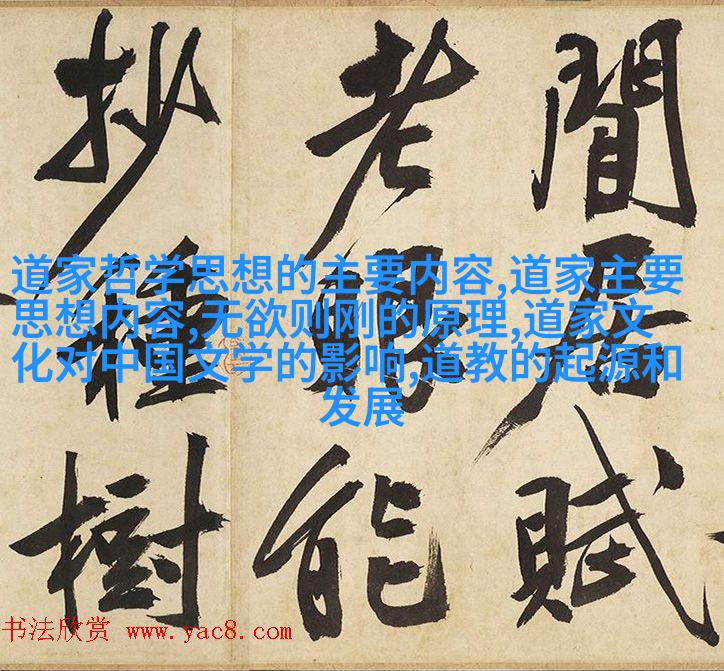 閒居賦
老眼能
抄種樹
道家哲学思想的主要内容,道家主要
思想内容,无欲则刚的原理,道家文
化对中国文学的影响,道教的起源和
发展
书法欣赏 www.yac8.com